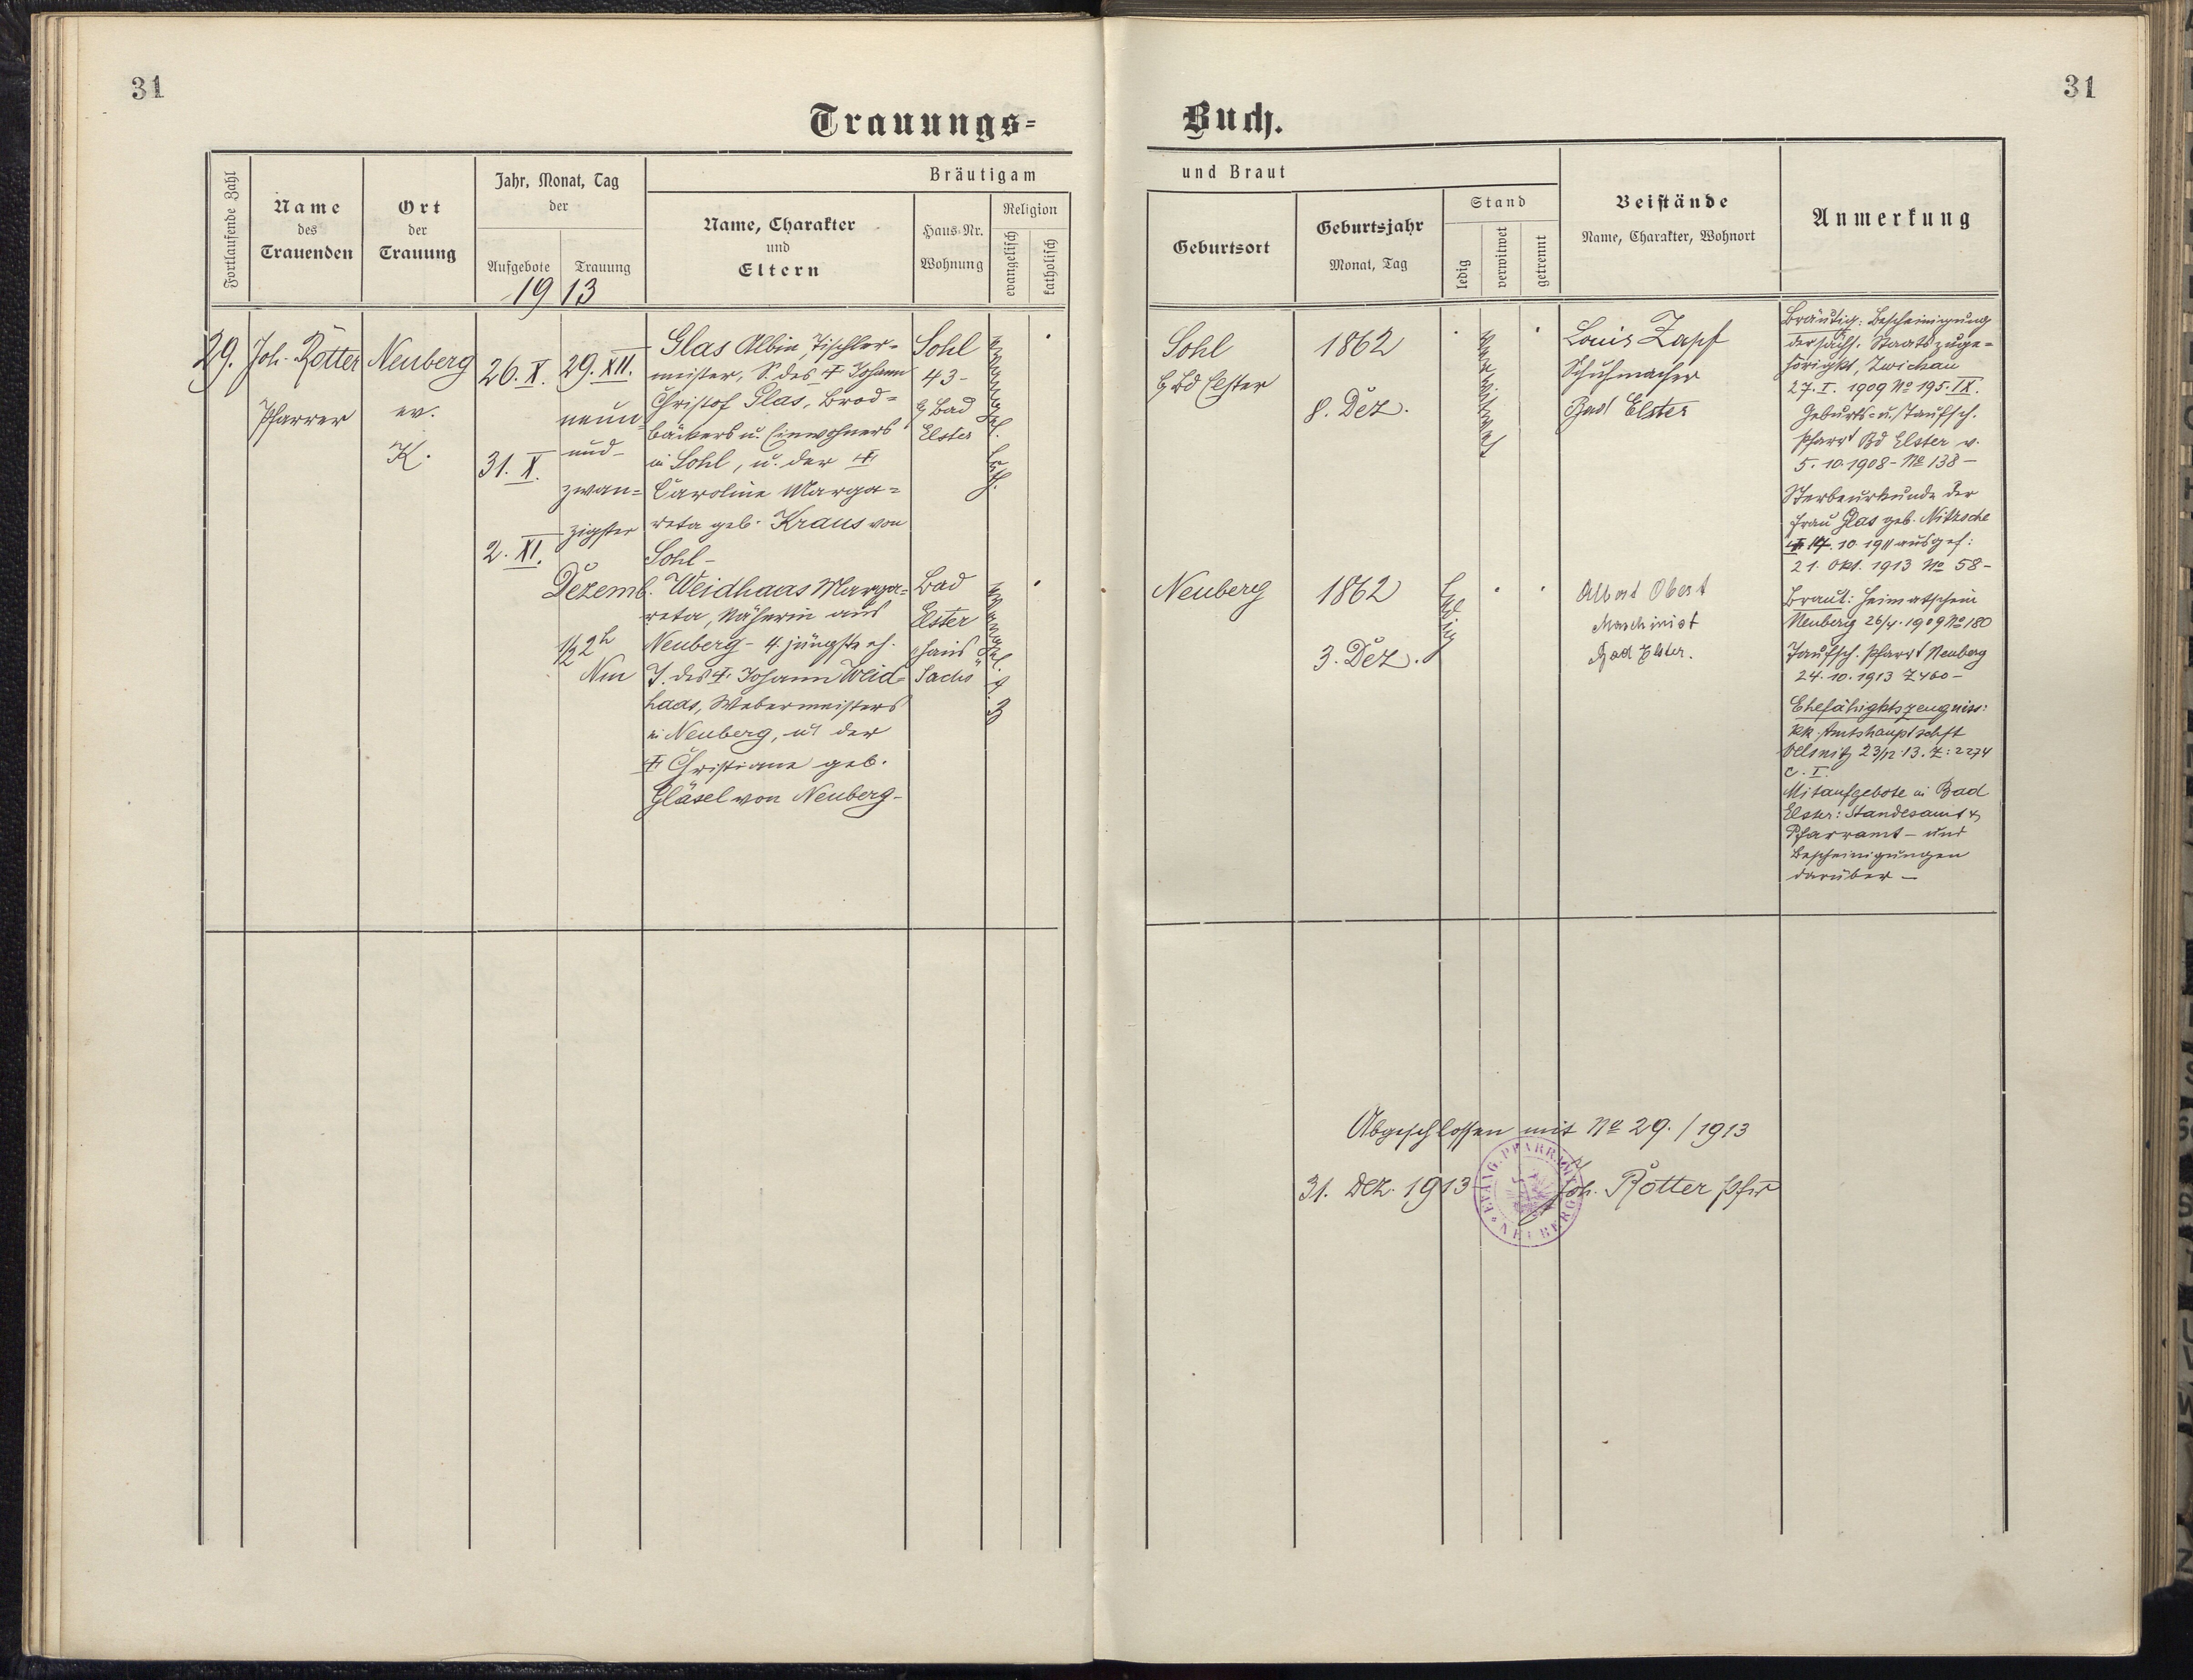 31
31
Trauungs-
Buch.
Fortlaufende Zahl
Name
des
Trauenden
Ort
der
Trauung
Jahr, Monat, Tag
der
Aufgebote
Trauung
1913
Bräutigam
Name, Charakter
und
Eltern
Haus-Nr.
Wohnung
Religion
evangelisch
katholisch
und Braut
Geburtsort
Geburtsjahr
Monat, Tag
Stand
ledig
verwitwet
getrennt
Beistände
Name, Charakter, Wohnort
Anmerkung
29.
Joh. Rotter
Pfarrer
Neuberg
ev.
K.
26. X.
31. X.
2. XI.
29. XII.
neun
und-
zwan=
zigster
Dezemb.
1/2 2h
Nm
Glas Albin, Tischler-
meister, S. des † Johann
Christof Glas, Brod=
bäckers u. Einwohners
in Sohl, u. der †
Caroline Marga=
reta geb. Kraus von
Sohl-
Sohl
43-
b/ Bad
Elster
evangel.
luth.
Sohl
b/ Bd Elster
1862
8. Dez.
verwitwet
Louis Zapf
Schuhmacher
Bad Elster
Bräutig: Bescheinigung
der sächs. Staatszuge=
hörigkt, Zwickau
27. I. 1909 No 195. IX.
Geburts- u. Taufsch.
Pfarrt Bd Elster v.
5. 10. 1908 - No 138 -
Sterbeurkunde der
Frau Glas geb. Nitzsche
† 17. 10. 1911 ausgef:
21. Okt. 1913 No 58-
Weidhaas Marga=
reta, Näherin aus
Neuberg - 4. jüngste eh.
T. des † Johann Weid=
haas, Webermeisters
in Neuberg, u. der
† Christiane geb.
Gläsel von Neuberg-
Bad
Elster
Haus
Sachs
evangel.
A. B.
Neuberg
1862
3. Dez.
ledig
Albert Obert
Maschinist
Bad Elster.
Braut: Heimatschein
Neuberg 1909 No 180
Taufsch. Pfarrt Neuberg
24. 10. 1913 Z 460 -
Ehefähigktszeugniss:
kk. Amtshauptschft
Oelsnitz 23/12. 13. Z: 2274
C. I.
Mitaufgebote in Bad
Elster: Standesamt &
Pfarramt - und
Bescheinigungen
darüber -
Abgeschlossen mit No 29. / 1913
31. Dez. 1913
Joh. Rotter Pfr
EVANG. PFARRAMT
NEUBERG